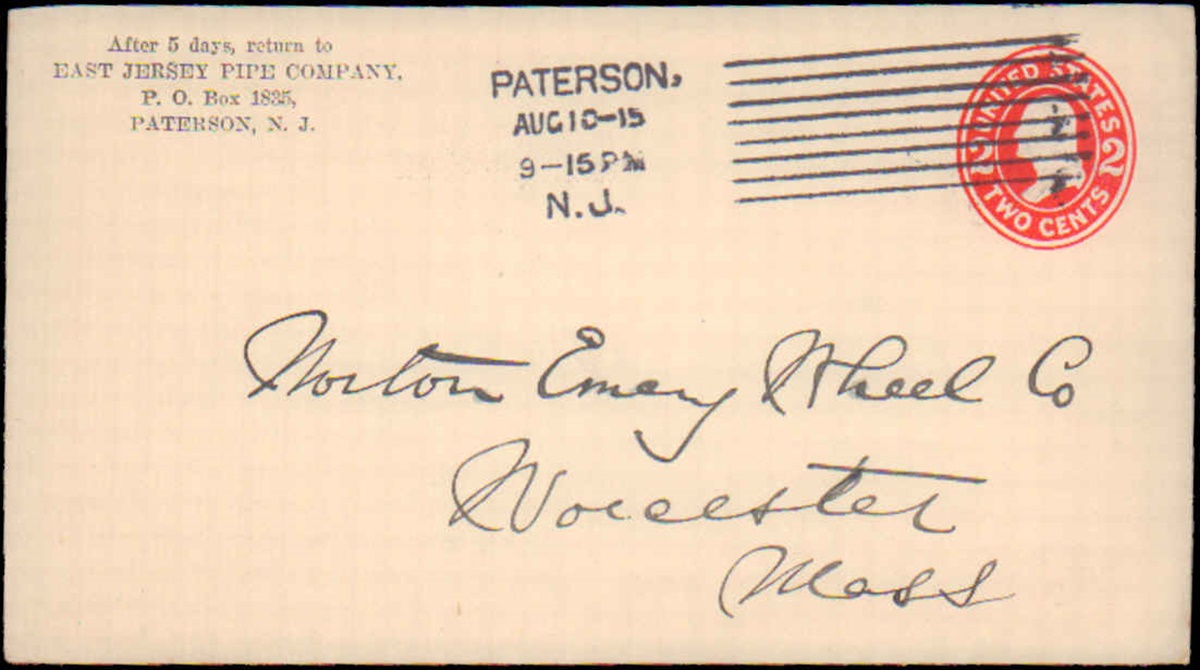 After 5 days, return to
EAST JERSEY PIPE COMPANY,
P. O. Box 1835,
PATERSON, N. J.
PATERSON,
AUG 10-15
9-15 PM
N.J.
UNITED STATES
2 2
TWO CENTS
Norton Emery Wheel Co
Worcester
Mass